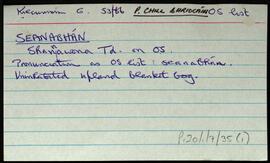 Kilcummin G. 53/86 P. CHILL CHUIMÍN OS list
SEANABHÁN
Shanawona Td. on OS.
Pronunciation as OS list : seanabhán.
Uninhabited upland blanket bog.
P.120/1/7/35(1)